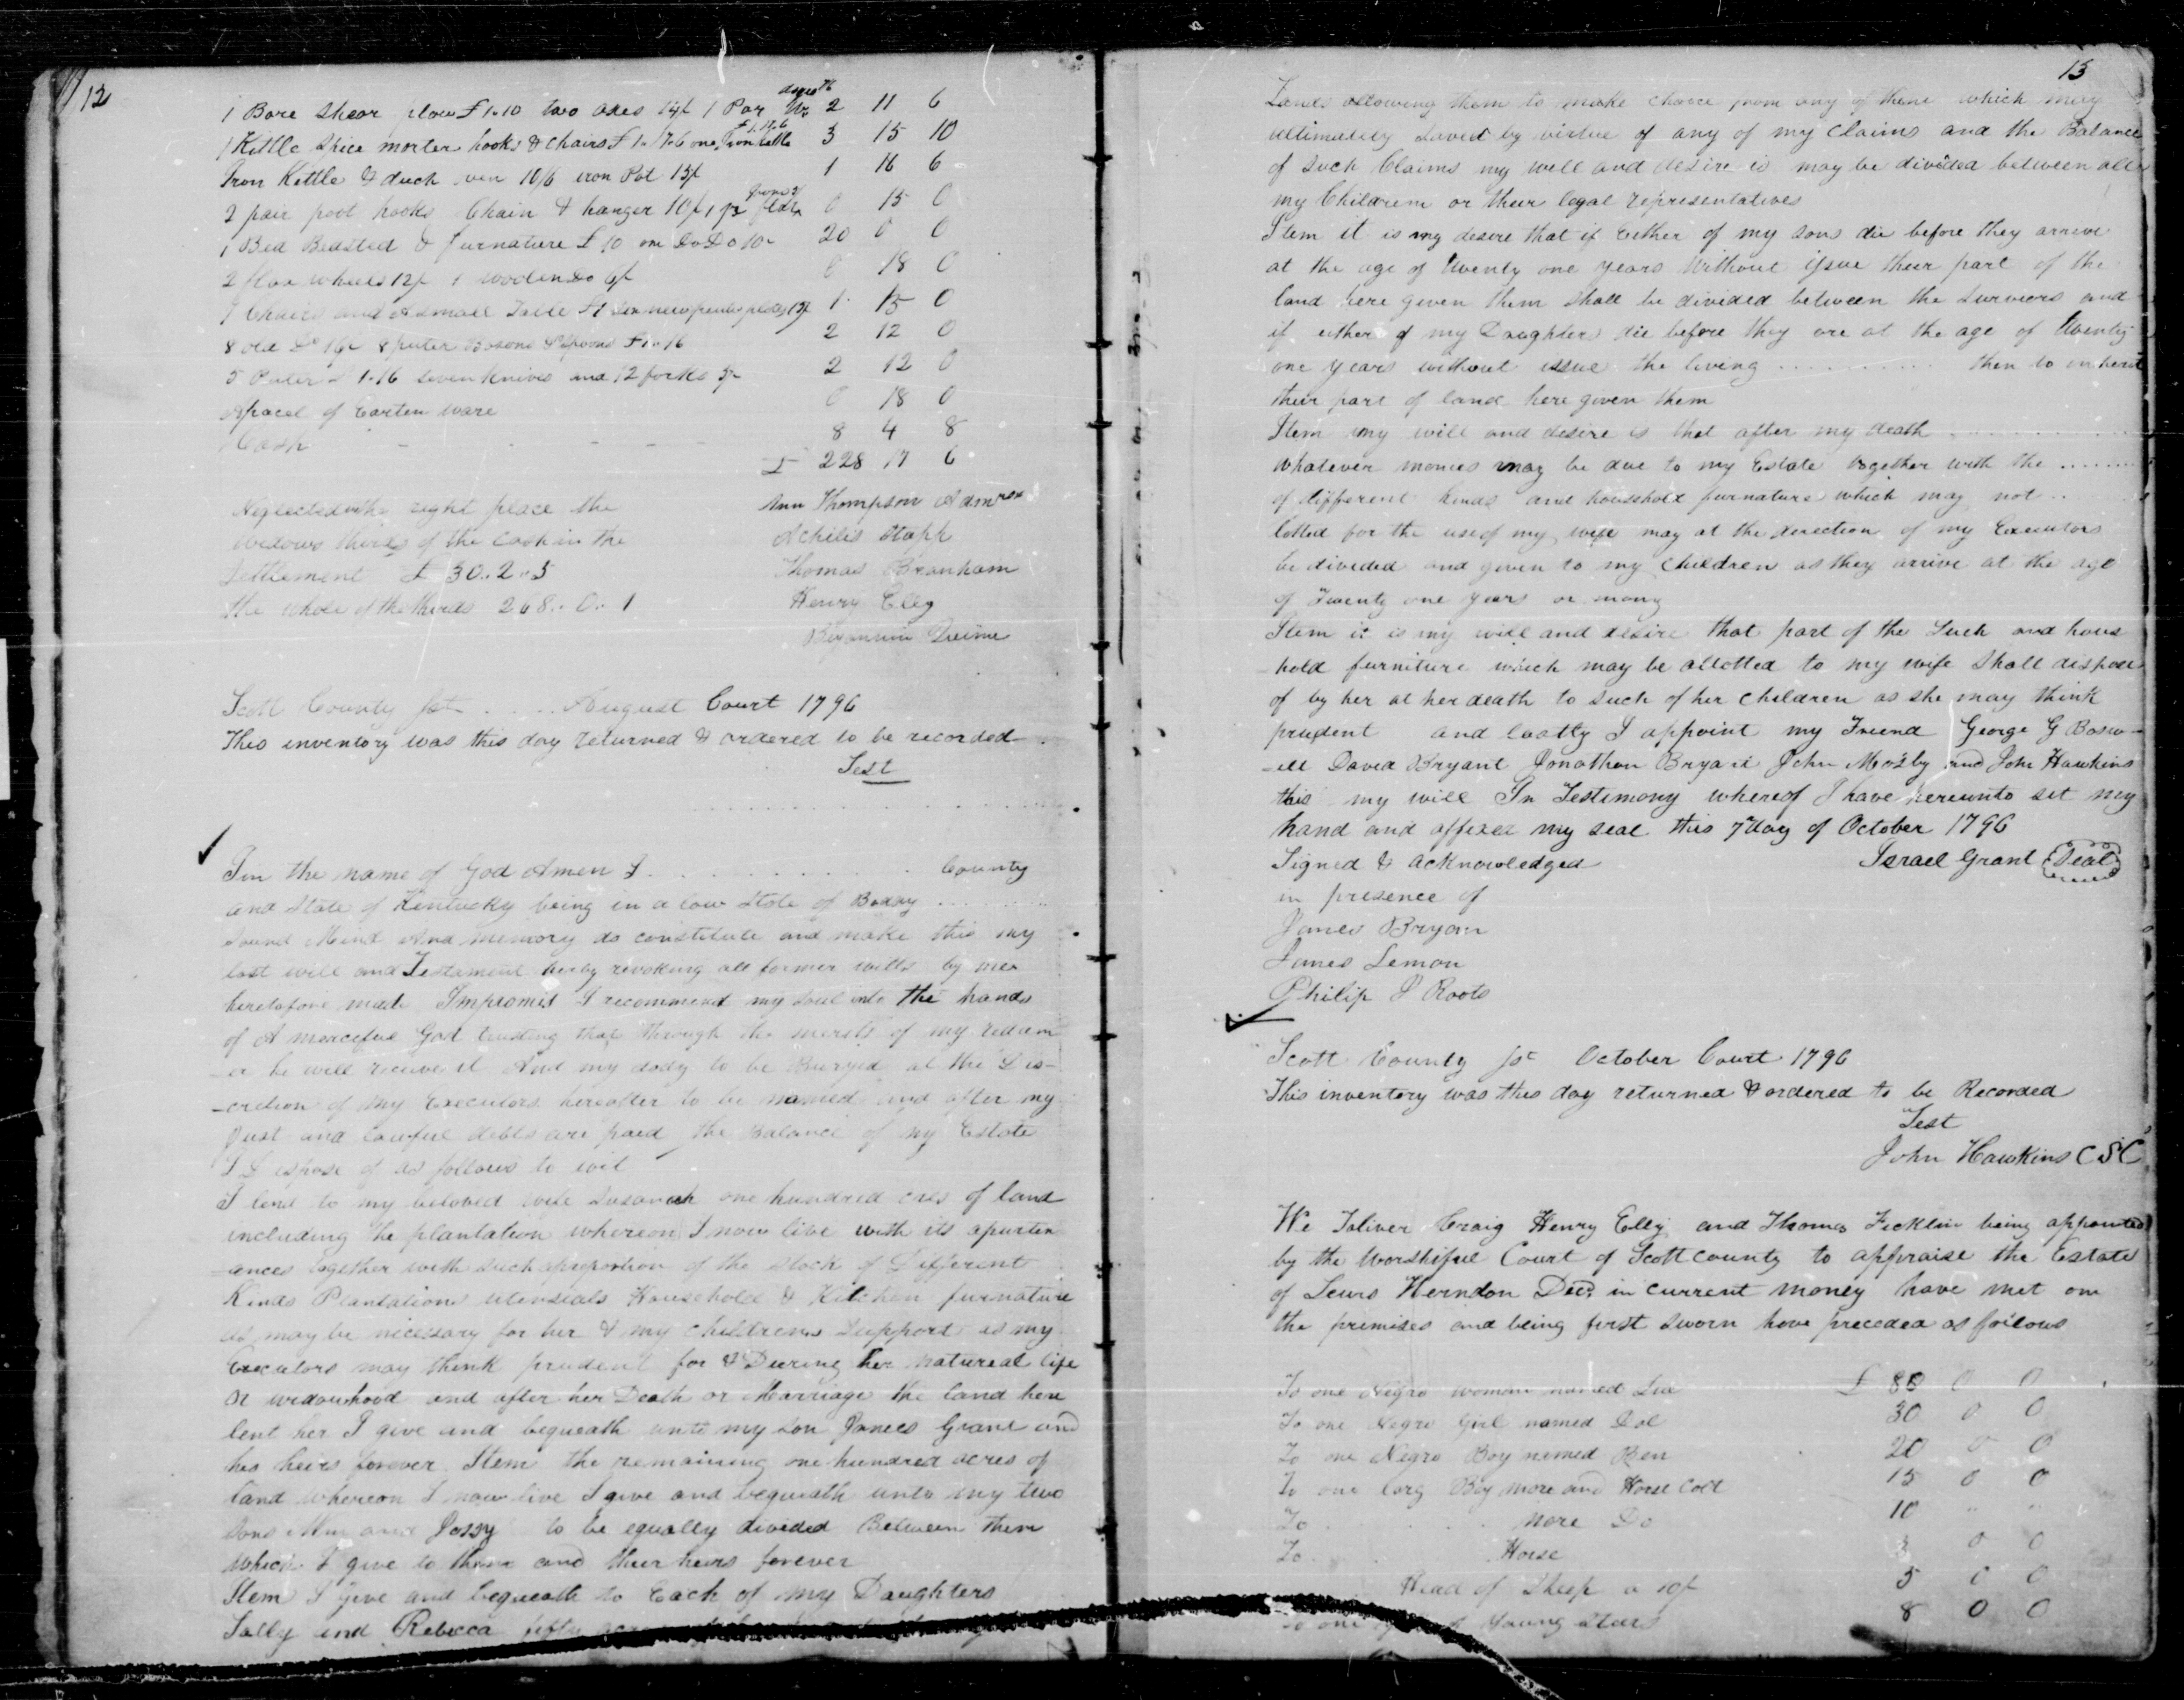 12
1 Bare Shear plow £1.10 two axes 14/ 1 Par 2 11 6
1 Kettle Spice morter hooks & chairs £1.7.6 one Iron kettle £1.17.6 3 15 10
Iron Kettle & duch oven 10/6 iron Pot 15/ 1 16 6
2 pair poot hooks Chain & hanger 10/ 1 pr 0 15 0
1 Bed Bedsted & furnature £10 one Do Do 10- 20 0 0
2 flax wheels 12/ 1 woolen Do 6/ 0 18 0
7 Chairs and A small Table £1 Six new pewter plates 15/ 1 15 0
8 old Do 16/ 8 puter Basons & Spoons £1..16 2 12 0
5 Puter 1.16 seven knives and 12 forks 2 12 0
A pacel of Earten ware 0 18 0
Cash - - - - 8 4 8
£ 228 17 6
Neglected in the right place the
widows thirds of the Cash in the
Settlement £ 30..2..5
the whole of the thirds 268..0..1
Ann Thompson Admrx
Achilis Stapp
Thomas Branham
Henry Elley
Scott County Sct .... August Court 1796
This inventory was this day returned & ordered to be recorded
Test
Iin the name of God Amen I ........... County
and State of Kentucky being in a low State of Boddy ........
Sound Mind And memory do constitute and make this my
last will and Testament herby revoking all former wills by me
heretofore made Impromis I recommend my Soul into the hands
of A merciful God trusting that through the merits of my redeem
-er he will receive it And my dody to be Buryed at the Dis-
-cretion of my Executors hereafter to be named and after my
Just and lawful debts are paid the Balance of my Estate
I Dispose of as follows to wit
I lend to my beloved wife Susanah one hundred cres of land
including the plantation whereon I now live with its apurten
-ances together with such aproportion of the Stock of Different
Kinds Plantation utensials Household & Kitchen furnature
as may be necessary for her & my childrens Support as my
Executors may think prudent for & During her natureal life
or widowhood and after her Death or Marriage the land here
lent her I give and bequeath unto my son James Grant and
his heirs forever Item the remaining one hundred acres of
land whereon I now live I give and bequeath unto my two
Sons and to be equally divided Between them
which I give to them and their heirs forever
Item I give and bequeath to Each of my Daughters
Sally and Rebecca fifty
13
Lands allowing them to make choice from any of them which may
ultimately Saved by virtue of any of my Claims and the Balance
of Such Claims my will and desire is may be divided between all
my Children or their legal representatives
Item it is my desire that if Either of my sons die before they arrive
at the age of Twenty one years Without issue their part of the
land here given them Shall be divided between the Surviors and
if either of my Daughters die before they are at the age of Twenty
one years without issue the living ........... then to inherit
their part of land here given them
Item my will and desire is that after my death ............
Whatever monies may be due to my Estate together with the .......
of different kinds and household furnature which may not ..
lotted for the use of my wife may at the direction of my Executors
be divided and given to my Children as they arrive at the age
of Twenty one years or
Item it is my will and desire that part of the and hous
-hold furniture which may be allotted to my wife Shall dispose
of by her at her death to such of her children as she may think
prudent and lastly I appoint my Friend George G Bosw-
-ell David Bryant Jonathan Bryant John Mosby and John Hawkins
this my will In Testimony whereof I have hereunto set my
hand and affixed my seal this 7 day of October 1796
Signed & acknowledged Israel Grant Seal
in presence of
James Bryan
James Lemon
Philip Roots
Scott County Sct October Court 1796
This inventory was this day returned & ordered to be Recorded
Test
John Hawkins CSC
We Toliver Craig Henry Elly and Thomas Ficklin being appointed
by the Worshipful Court of Scott county to appraise the Estate
of Lewis Herndon Decd. in current money have met on
the premises and being first sworn have preceded as follows
To one Negro woman named £ 80 0 0
To one Negro Girl named Dol 30 0 0
To one Negro Boy named Ben 20 0 0
To one larg Bay more and Horse Colt 15 0 0
To ........ more Do 10 " "
To ..... Horse 0 0
Head of Sheep a 10/ 5 0 0
To one Young Stears 8 0 0